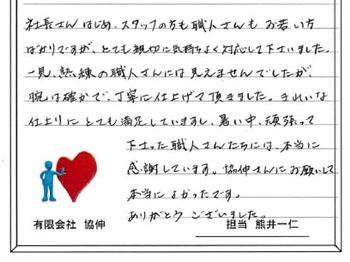 社長さんはじめ、スタッフの方も職人さんもお若い方
ばかりですが、とても親切に気持ちよく対応して下さいました。
一見、熟練の職人さんには見えませんでしたが、
腕は確かで、丁寧に仕上げて頂きました。きれいな
仕上りにとても満足していますし、暑い中、頑張って
下さった職人さんたちには、本当に
感謝しています。協伸さんにお願いして
本当によかったです。
ありがとうございました。
有限会社 協伸
担当 熊井一仁